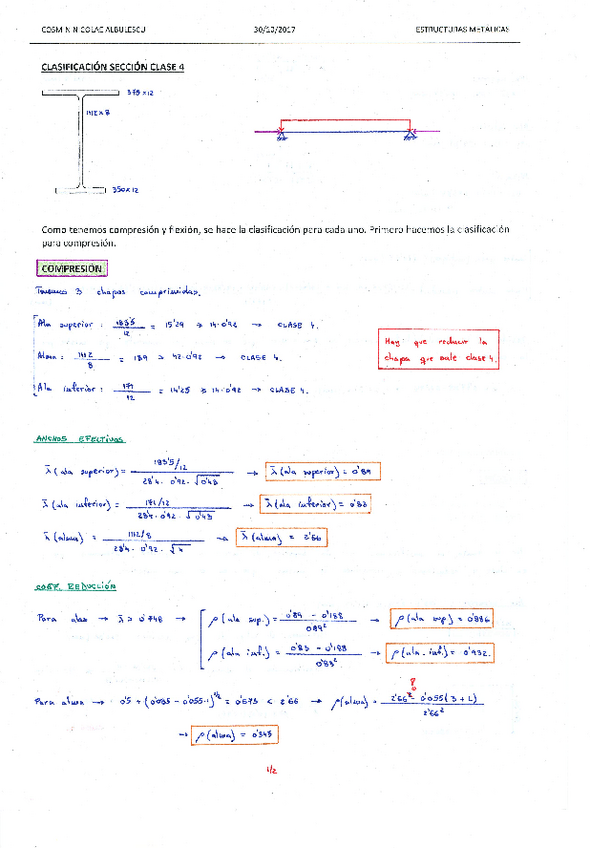 COSMIN NICOLAE ALBULESCU 30/10/2017 ESTRUCTURAS METÁLICAS
CLASIFICACIÓN SECCIÓN CLASE 4
375x12
1112x8
350x12
Como tenemos compresión y flexión, se hace la clasificación para cada uno. Primero hacemos la clasificación
para compresión.
COMPRESIÓN
Tenemos 3 chapas comprimidas.
Ala superior: 183'5/12 = 15'29 > 14·0'92 → CLASE 4.
Hay que reducir la
chapa que sale clase 4.
Alma: 1112/8 = 139 > 42·0'92 → CLASE 4.
Ala inferior: 171/12 = 14'25 > 14·0'92 → CLASE 4.
ANCHOS EFECTIVOS
λ̄ (ala superior) = (183'5/12)/(28'4 · 0'92 · √0'43) → λ̄ (ala superior) = 0'89
λ̄ (ala inferior) = (171/12)/(28'4 · 0'92 · √0'43) → λ̄ (ala inferior) = 0'83
λ̄ (alma) = (1112/8)/(28'4 · 0'92 · √4) → λ̄ (alma) = 2'66
COEF. REDUCCIÓN
Para alas → λ̄ > 0'748 → ρ (ala sup.) = (0'89 - 0'188)/0'89² → ρ (ala sup) = 0'886
ρ (ala inf.) = (0'83 - 0'188)/0'83² → ρ (ala inf.) = 0'932.
?
Para alma → 0'5 + (0'085 - 0'055·1)^1/2 = 0'673 < 2'66 → ρ (alma) = (2'66² - 0'055(3+1))/2'66²
→ ρ (alma) = 0'345
1/2